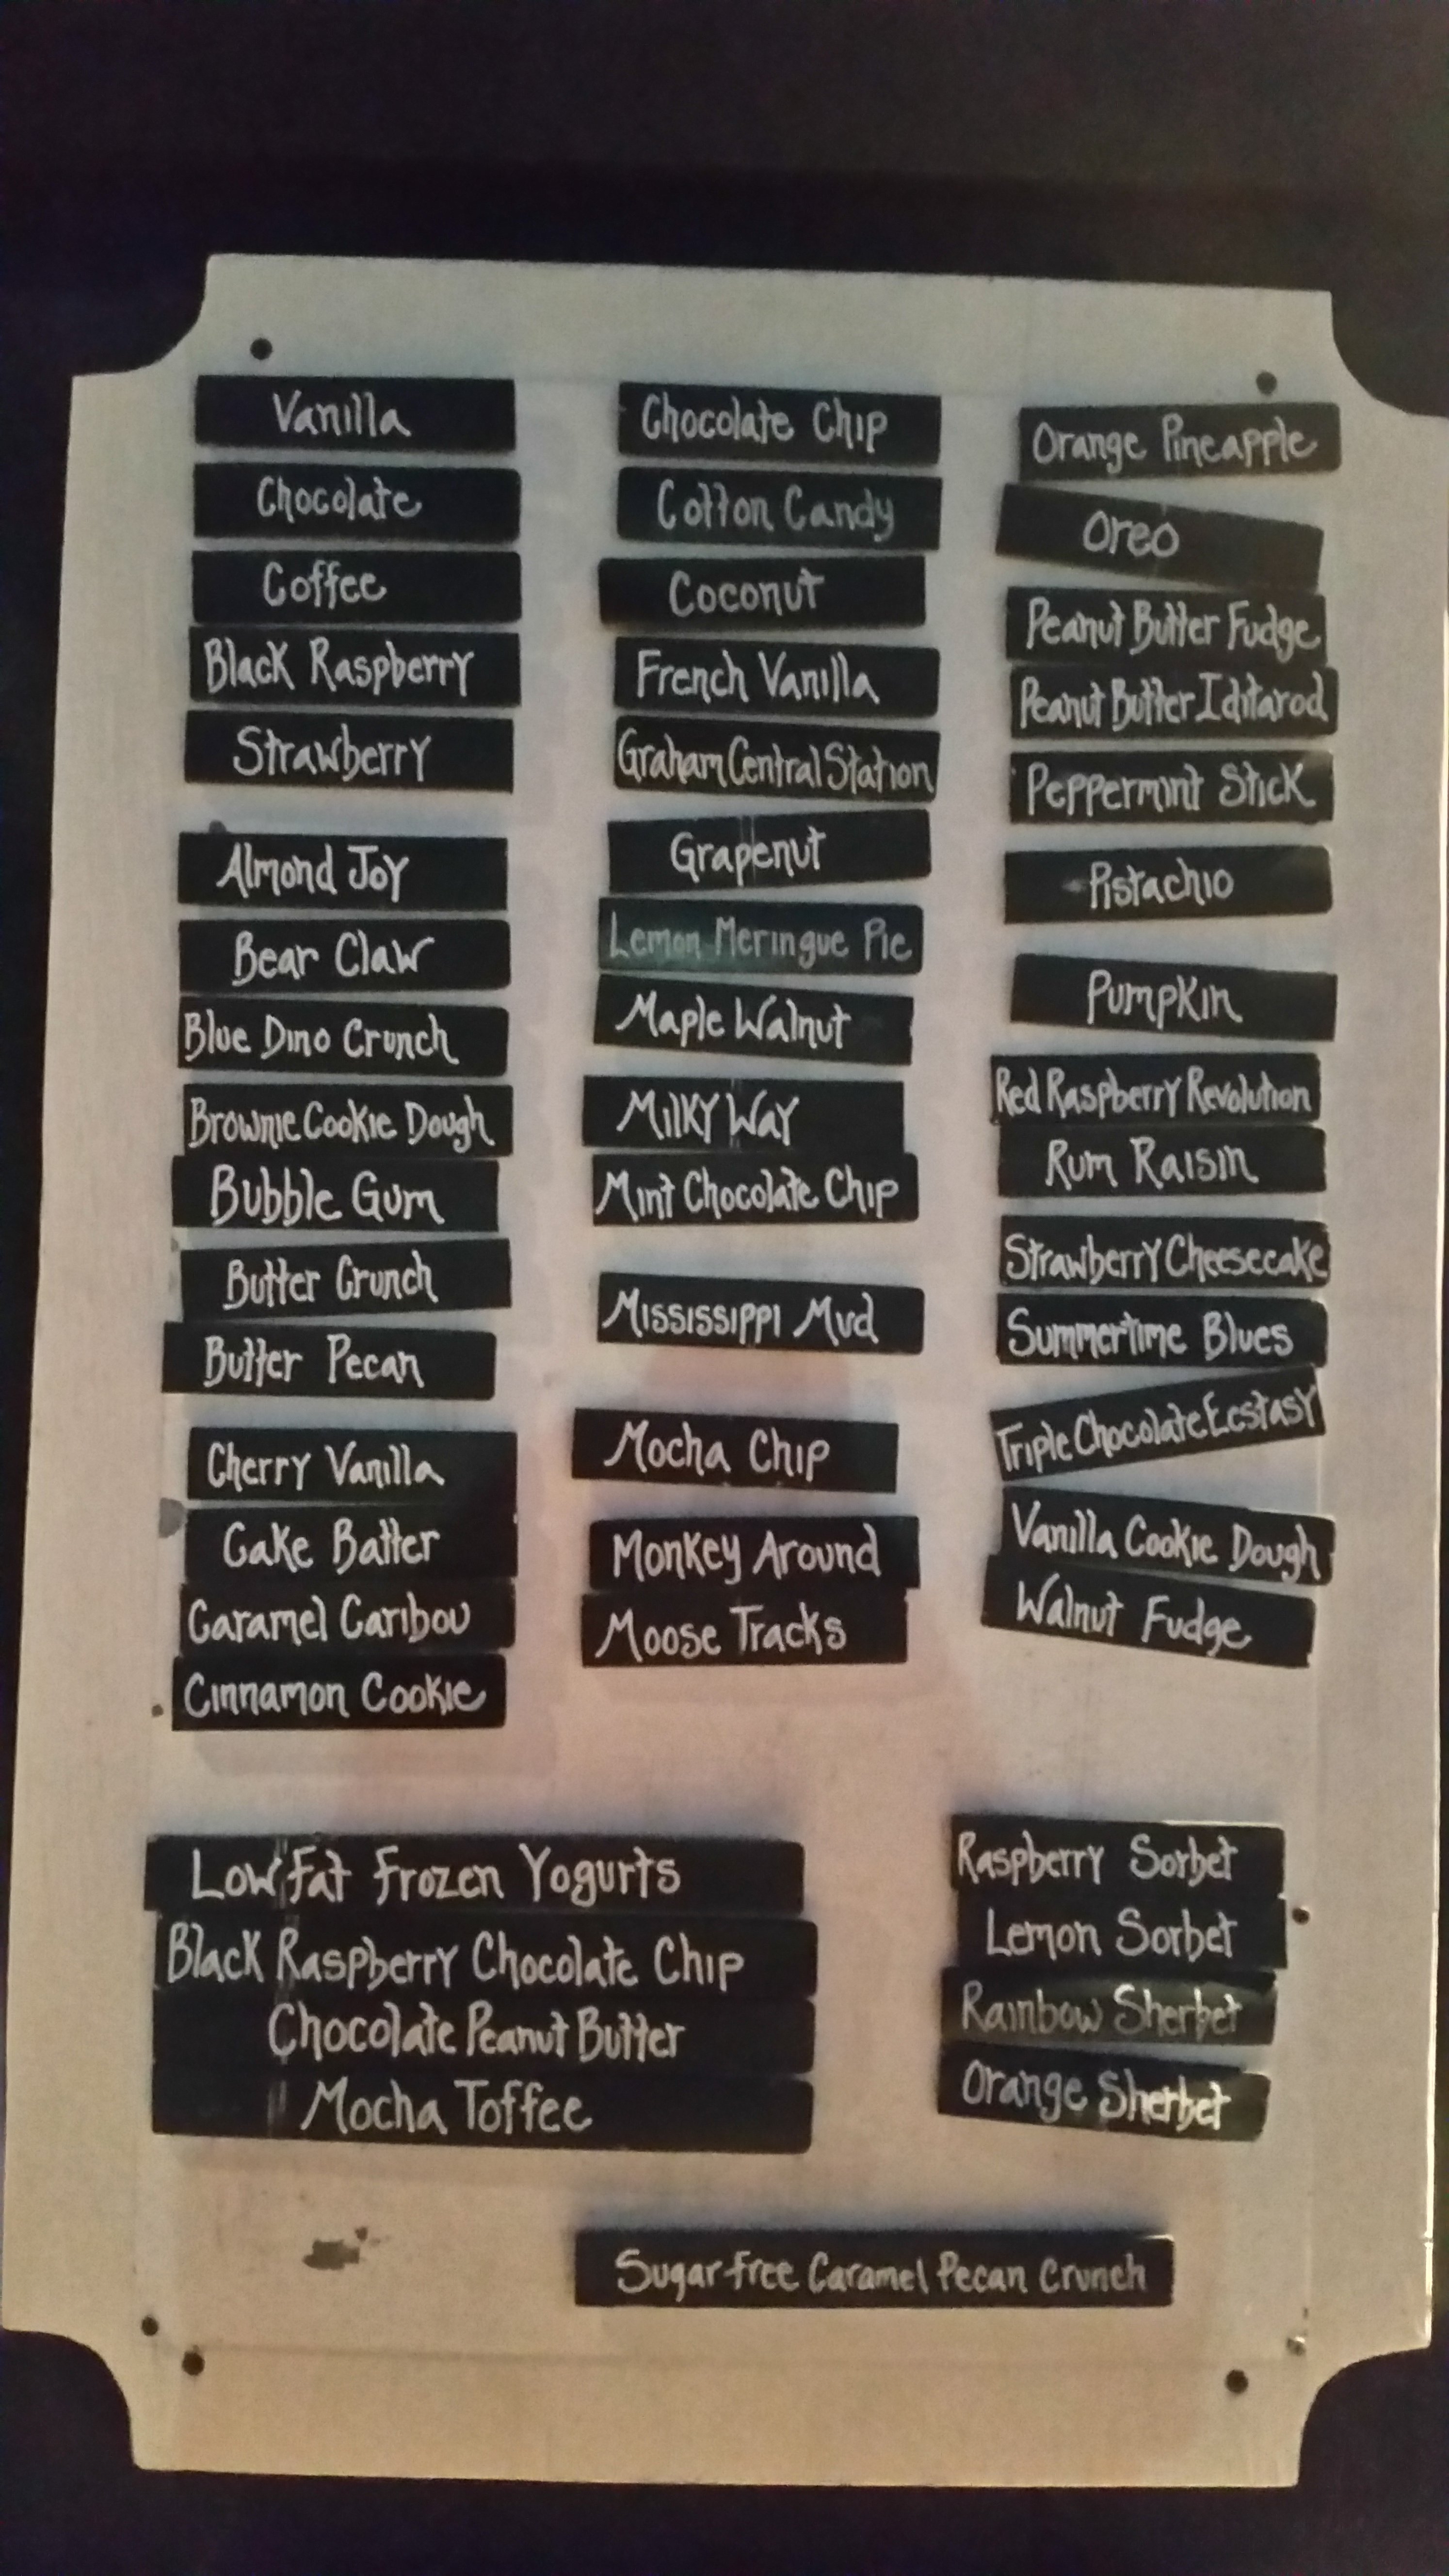 Vanilla
Chocolate
Coffee
Black Raspberry
Strawberry
Almond Joy
Bear Claw
Blue Dino Crunch
Brownie Cookie Dough
Bubble Gum
Butter Crunch
Butter Pecan
Cherry Vanilla
Cake Batter
Caramel Caribou
Cinnamon Cookie
Chocolate Chip
Cotton Candy
Coconut
French Vanilla
Graham Central Station
Grapenut
Lemon Meringue Pie
Maple Walnut
Milky Way
Mint Chocolate Chip
Mississippi Mud
Mocha Chip
Monkey Around
Moose Tracks
Orange Pineapple
Oreo
Peanut Butter Fudge
Peanut Butter Iditarod
Peppermint Stick
Pistachio
Pumpkin
Red Raspberry Revolution
Rum Raisin
Strawberry Cheesecake
Summertime Blues
Triple Chocolate Ecstasy
Vanilla Cookie Dough
Walnut Fudge
Low Fat Frozen Yogurts
Black Raspberry Chocolate Chip
Chocolate Peanut Butter
Mocha Toffee
Raspberry Sorbet
Lemon Sorbet
Rainbow Sherbet
Orange Sherbet
Sugar free Caramel Pecan Crunch